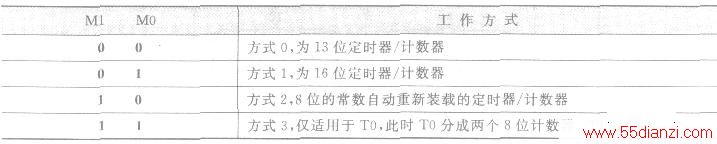 M1 M0 工作方式
0 0 方式 0,为 13 位定时器/计数器
0 1 方式 1,为 16 位定时器/计数器
1 0 方式 2,8 位的常数自动重新装载的定时器/计数器
1 1 方式 3,仅适用于 T0,此时 T0 分成两个 8 位计数
www.55dianzi.com